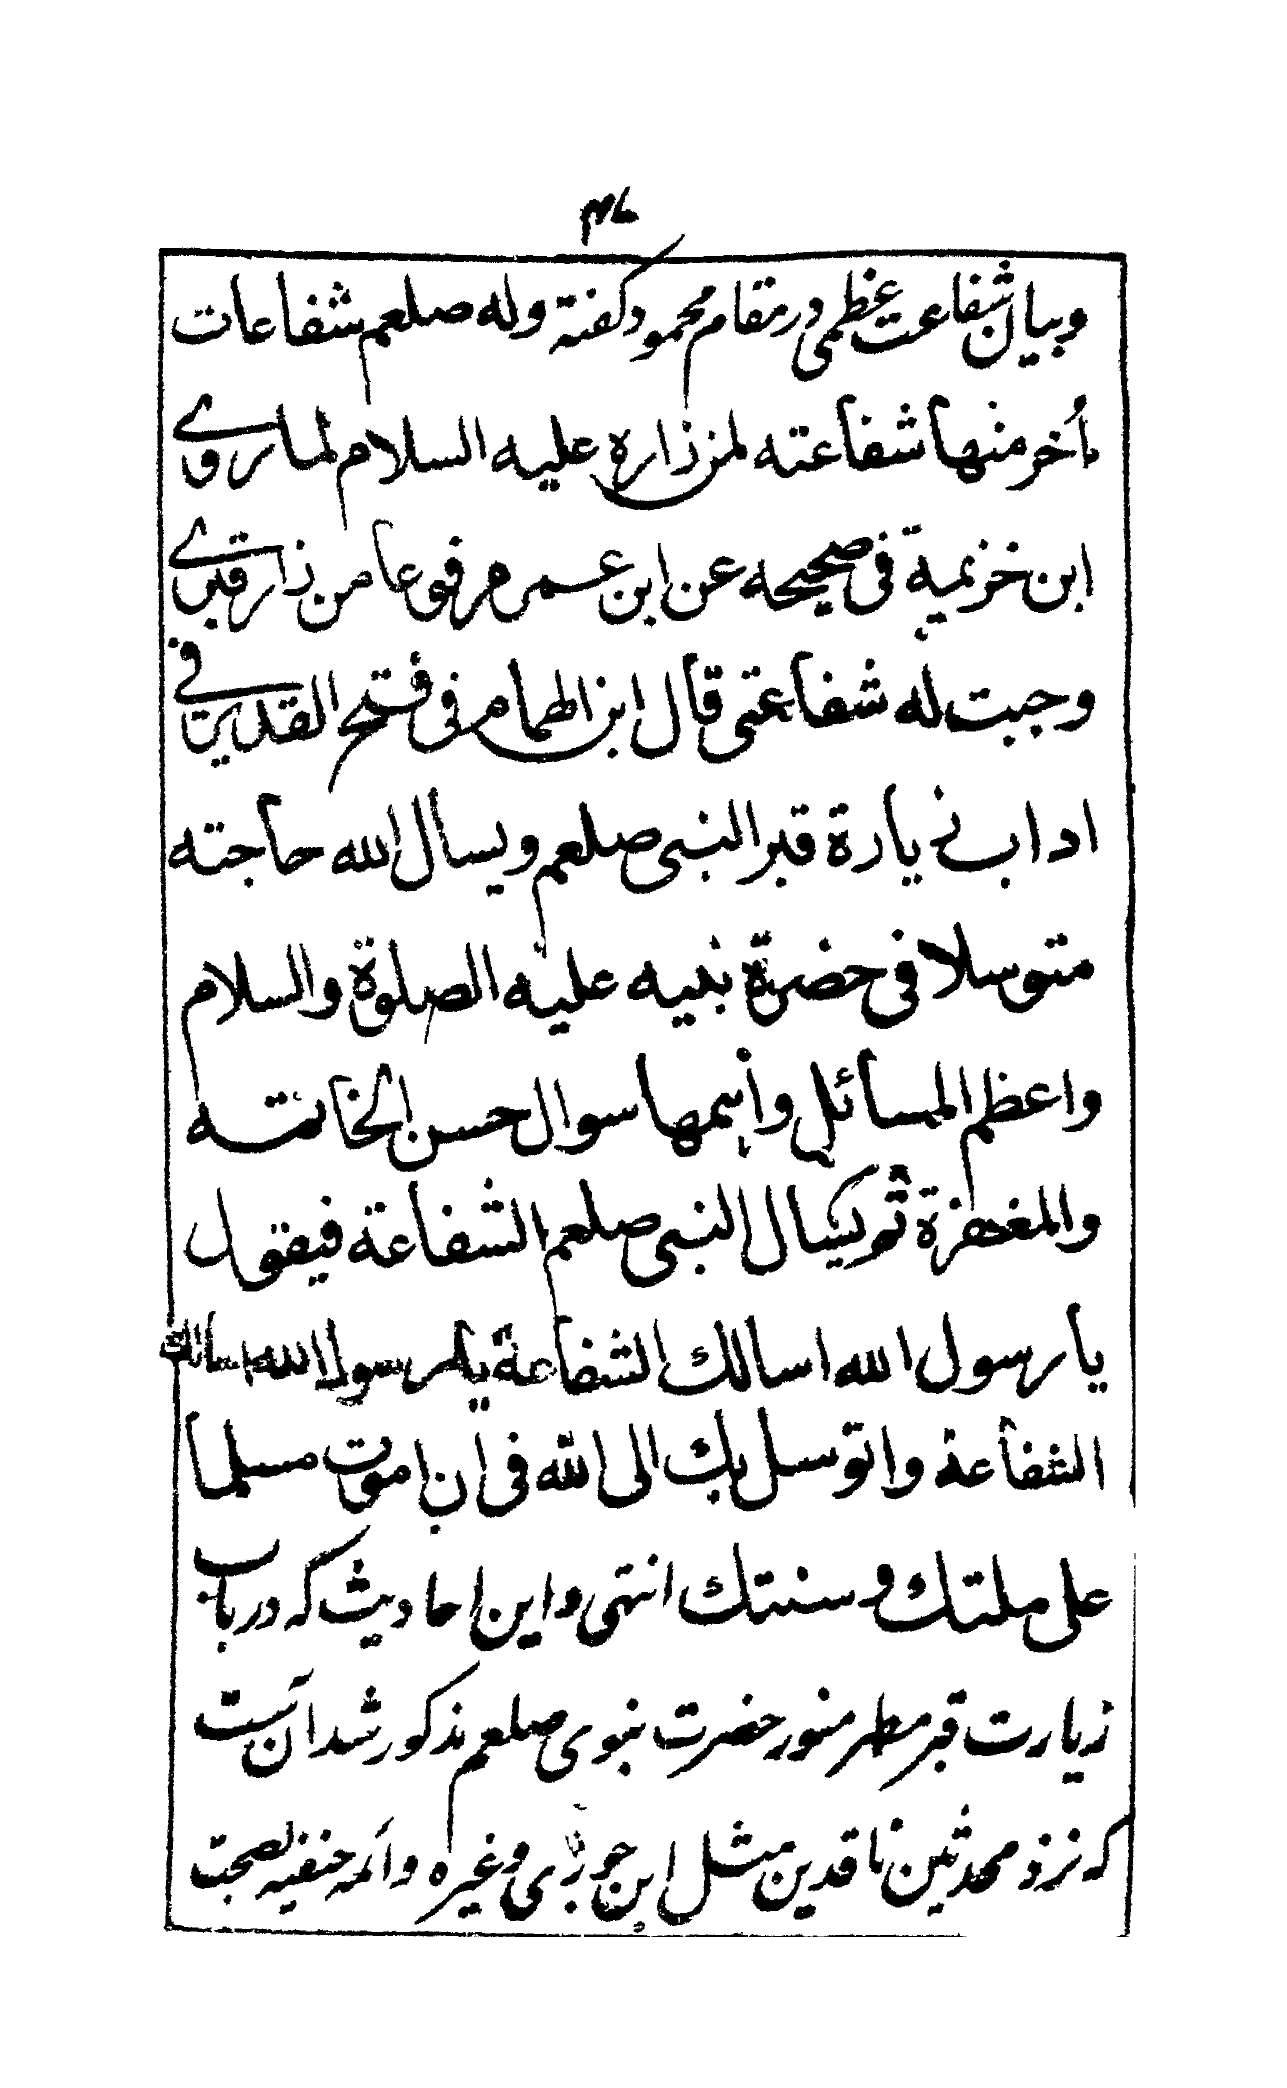 ۴۷
وبیان شفاعت عظمی در مقام محمود گفته وله صلعم شفاعات
اُخر منها شفاعته لمن زاره علیه السلام لما روی
ابن خزیمة فی صحیحه عن ابن عمر مرفوعا من زار قبری
وجبت له شفاعتی قال ابن الهمام فی فتح القدیر فی
اداب زیارة قبر النبی صلعم ویسأل الله حاجته
متوسلا فی حضرة نبیه علیه الصلوة والسلام
واعظم المسائل وأهمها سوال حسن الخاتمه
والمغفرة ثم یسأل النبی صلعم الشفاعة فیقول
یا رسول الله اسالك الشفاعة یا رسول الله اسالك
الشفاعة واتوسل بك الی الله فی ان اموت مسلما
علی ملتك وسنتك انتهی و این احادیث که در باب
زیارت قبر مطهر منور حضرت نبوی صلعم مذکور شد آنست
که نزد محدثین ناقدین مثل ابن جوزی وغیره وائمه حنفیه لصحبت